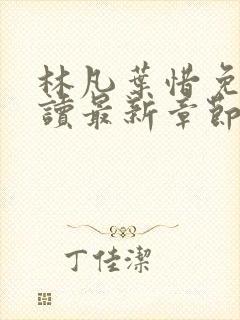 林凡葉惜免
讀最新章節
丁佳潔